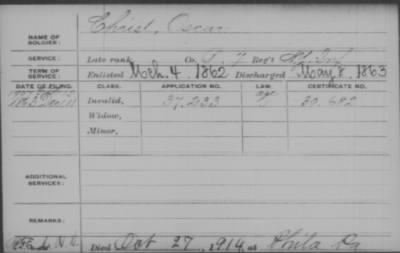 Christ, Oscar
NAME OF SOLDIER:
SERVICE: Late rank Co. Reg't
TERM OF SERVICE: Enlisted Mch. 4, 1862 Discharged May 8, 1863
DATE OF FILING. CLASS. APPLICATION NO. LAW. CERTIFICATE NO.
1863 Dec 11 Invalid, 37.233 30.682
Widow,
Minor,
ADDITIONAL SERVICES:
REMARKS:
Died Oct 27, 1914, at Phila Pa